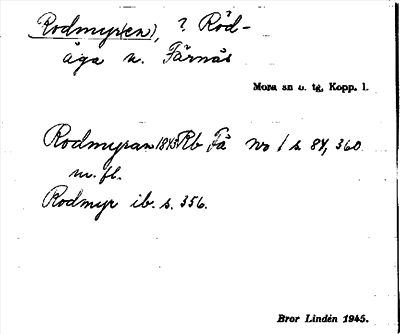 Rodmyr(en), ? Röd-
åga n. Färnäs
Mora sn o. tg, Kopp. l.
Rodmyran 1845 Rb Få no 1 s. 84, 360
m. fl.
Rodmyr ib. s. 356.
Bror Lindén 1945.